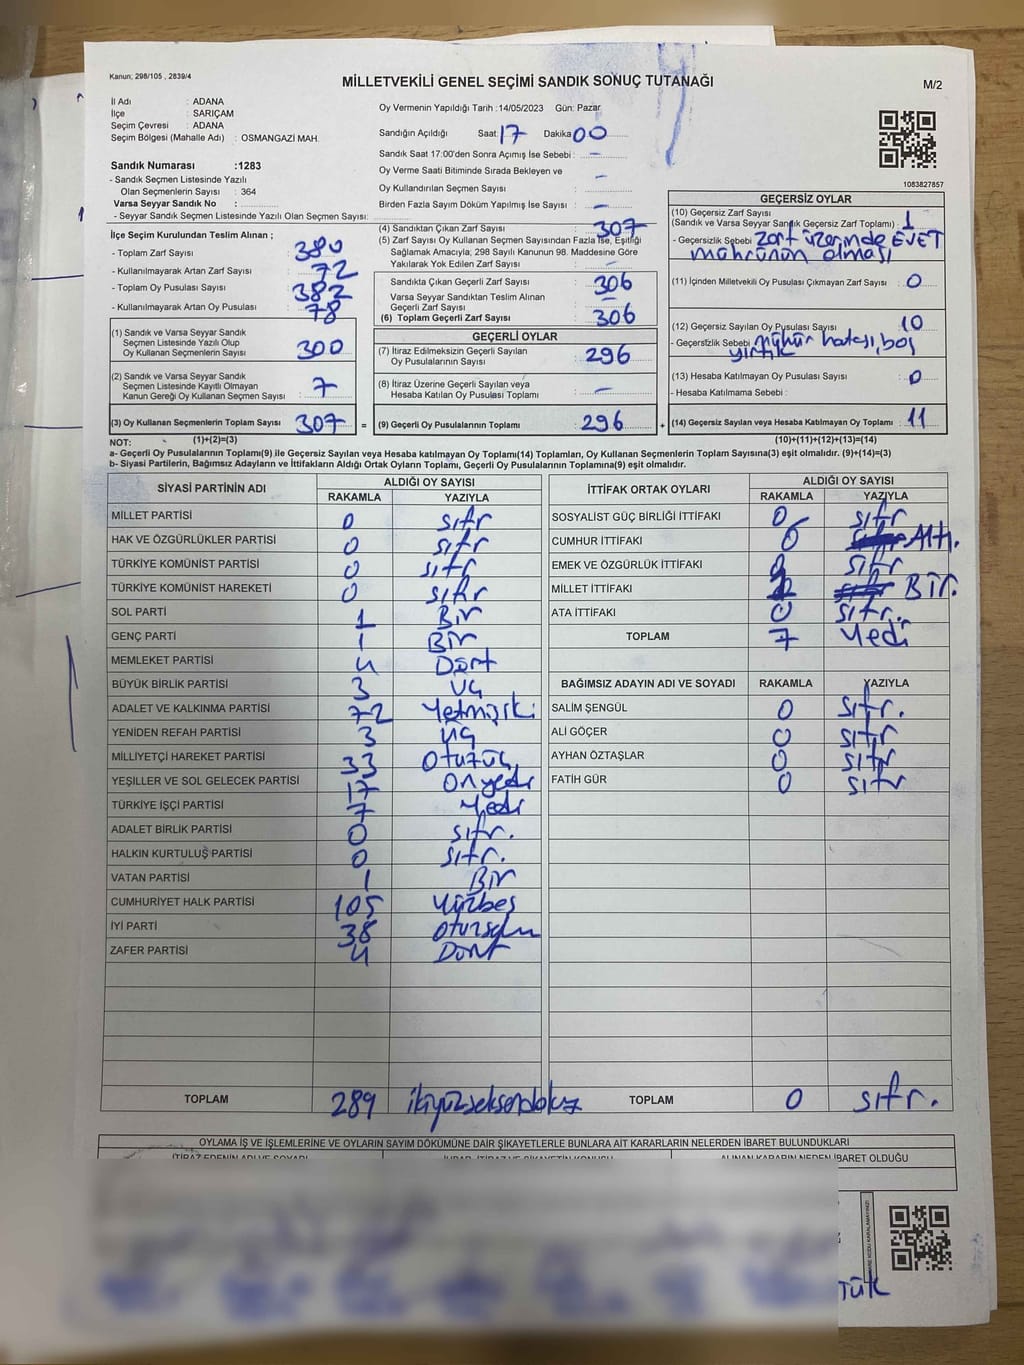 Kanun; 298/105 , 2839/4
MİLLETVEKİLİ GENEL SEÇİMİ SANDIK SONUÇ TUTANAĞI
M/2
İl Adı : ADANA
İlçe : SARIÇAM
Seçim Çevresi : ADANA
Seçim Bölgesi (Mahalle Adı) : OSMANGAZİ MAH.
Sandık Numarası :1283
- Sandık Seçmen Listesinde Yazılı
Olan Seçmenlerin Sayısı : 364
Varsa Seyyar Sandık No :
- Seyyar Sandık Seçmen Listesinde Yazılı Olan Seçmen Sayısı:
Oy Vermenin Yapıldığı Tarih :14/05/2023 Gün: Pazar
Sandığın Açıldığı Saat: 17 Dakika 00
Sandık Saat 17:00'den Sonra Açımış İse Sebebi : -
Oy Verme Saati Bitiminde Sırada Bekleyen ve
Oy Kullandırılan Seçmen Sayısı : -
Birden Fazla Sayım Döküm Yapılmış İse Sayısı : -
1083827857
İlçe Seçim Kurulundan Teslim Alınan ;
- Toplam Zarf Sayısı : 380
- Kullanılmayarak Artan Zarf Sayısı : 72
- Toplam Oy Pusulası Sayısı : 382
- Kullanılmayarak Artan Oy Pusulası : 78
(1) Sandık ve Varsa Seyyar Sandık
Seçmen Listesinde Yazılı Olup
Oy Kullanan Seçmenlerin Sayısı : 300
(2) Sandık ve Varsa Seyyar Sandık
Seçmen Listesinde Kayıtlı Olmayan
Kanun Gereği Oy Kullanan Seçmen Sayısı : 7
(3) Oy Kullanan Seçmenlerin Toplam Sayısı : 307
(1)+(2)=(3)
(4) Sandıktan Çıkan Zarf Sayısı : 307
(5) Zarf Sayısı Oy Kullanan Seçmen Sayısından Fazla İse, Eşitliği
Sağlamak Amacıyla; 298 Sayılı Kanunun 98. Maddesine Göre
Yakılarak Yok Edilen Zarf Sayısı : -
Sandıkta Çıkan Geçerli Zarf Sayısı : 306
Varsa Seyyar Sandıktan Teslim Alınan
Geçerli Zarf Sayısı : -
(6) Toplam Geçerli Zarf Sayısı : 306
GEÇERLİ OYLAR
(7) İtiraz Edilmeksizin Geçerli Sayılan
Oy Pusulalarının Sayısı : 296
(8) İtiraz Üzerine Geçerli Sayılan veya
Hesaba Katılan Oy Pusulası Toplamı : -
= (9) Geçerli Oy Pusulalarının Toplamı : 296
GEÇERSİZ OYLAR
(10) Geçersiz Zarf Sayısı
(Sandık ve Varsa Seyyar Sandık Geçersiz Zarf Toplamı) : 1
- Geçersizlik Sebebi : zarf üzerinde EVET
mührünün olması
(11) İçinden Milletvekili Oy Pusulası Çıkmayan Zarf Sayısı : 0
(12) Geçersiz Sayılan Oy Pusulası Sayısı : 10
- Geçersizlik Sebebi : mühür hatası, boş
yırtık
(13) Hesaba Katılmayan Oy Pusulası Sayısı : 0
- Hesaba Katılmama Sebebi :
+ (14) Geçersiz Sayılan veya Hesaba Katılmayan Oy Toplamı : 11
(10)+(11)+(12)+(13)=(14)
NOT:
a- Geçerli Oy Pusulalarının Toplamı(9) ile Geçersiz Sayılan veya Hesaba katılmayan Oy Toplamı(14) Toplamları, Oy Kullanan Seçmenlerin Toplam Sayısına(3) eşit olmalıdır. (9)+(14)=(3)
b- Siyasi Partilerin, Bağımsız Adayların ve İttifakların Aldığı Ortak Oyların Toplamı, Geçerli Oy Pusulalarının Toplamına(9) eşit olmalıdır.
SİYASİ PARTİNİN ADI ALDIĞI OY SAYISI
RAKAMLA YAZIYLA
MİLLET PARTİSİ 0 sıfır
HAK VE ÖZGÜRLÜKLER PARTİSİ 0 sıfır
TÜRKİYE KOMÜNİST PARTİSİ 0 sıfır
TÜRKİYE KOMÜNİST HAREKETİ 0 sıfır
SOL PARTİ 1 Bir
GENÇ PARTİ 1 Bir
MEMLEKET PARTİSİ 4 Dört
BÜYÜK BİRLİK PARTİSİ 3 Üç
ADALET VE KALKINMA PARTİSİ 72 Yetmişiki
YENİDEN REFAH PARTİSİ 3 üç
MİLLİYETÇİ HAREKET PARTİSİ 33 Otuzüç
YEŞİLLER VE SOL GELECEK PARTİSİ 17 Onyedi
TÜRKİYE İŞÇİ PARTİSİ 7 Yedi
ADALET BİRLİK PARTİSİ 0 sıfır.
HALKIN KURTULUŞ PARTİSİ 0 sıfır.
VATAN PARTİSİ 1 Bir
CUMHURİYET HALK PARTİSİ 105 Yüzbeş
İYİ PARTİ 38
ZAFER PARTİSİ 4 Dört
TOPLAM 289 ikiyüzseksendokuz
İTTİFAK ORTAK OYLARI ALDIĞI OY SAYISI
RAKAMLA YAZIYLA
SOSYALİST GÜÇ BİRLİĞİ İTTİFAKI 0 sıfır
CUMHUR İTTİFAKI 6 Altı.
EMEK VE ÖZGÜRLÜK İTTİFAKI sıfır
MİLLET İTTİFAKI Bir.
ATA İTTİFAKI 0 sıfır.
TOPLAM 7 Yedi
BAĞIMSIZ ADAYIN ADI VE SOYADI RAKAMLA YAZIYLA
SALİM ŞENGÜL 0 sıfır.
ALİ GÖÇER 0 sıfır
AYHAN ÖZTAŞLAR 0 sıfır
FATİH GÜR 0 sıfır
TOPLAM 0 sıfır.
OYLAMA İŞ VE İŞLEMLERİNE VE OYLARIN SAYIM DÖKÜMÜNE DAİR ŞİKAYETLERLE BUNLARA AİT KARARLARIN NELERDEN İBARET BULUNDUKLARI
ALINAN KARARIN NEDEN İBARET OLDUĞU